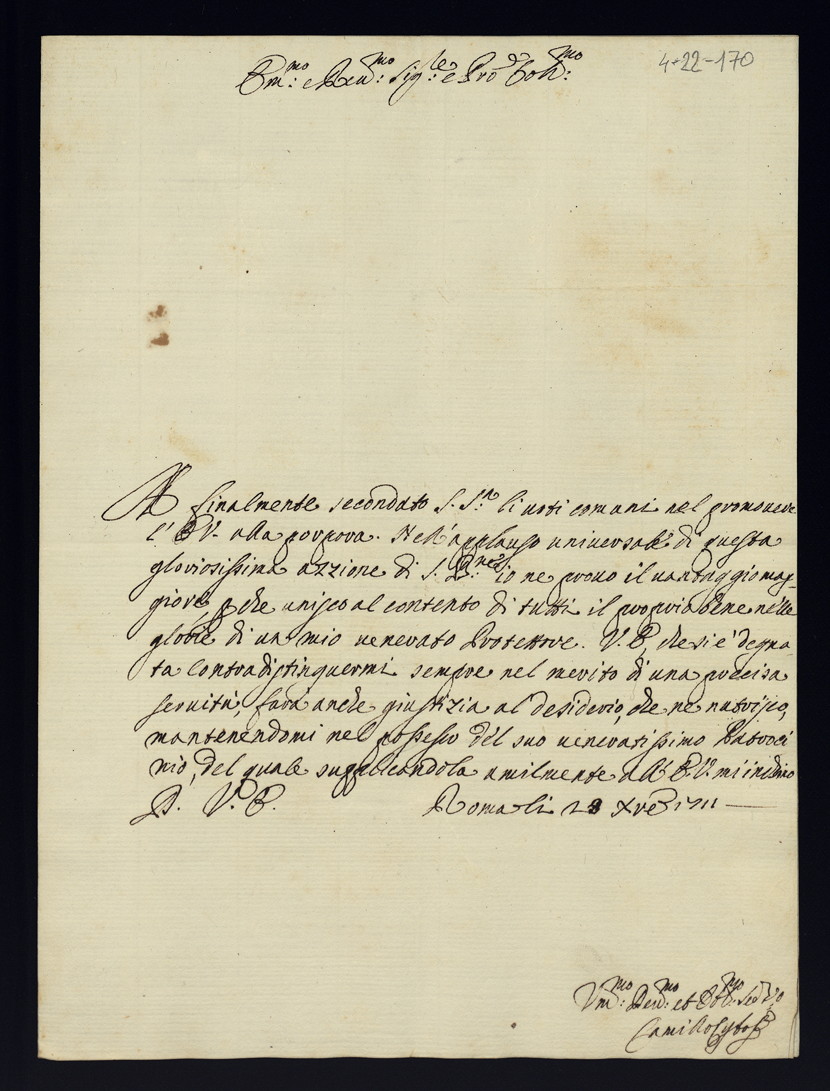 Em:mo e Reu:mo Sig:re e Pro Col:mo
4-22-170
A finalmente secondato S. S.tà li uoti comuni nel promouere
l'E.V. alla porpora. Nell'applauso uniuersale di questa
gloriosissima azzione di S. B.ne io ne prouo il uantaggio mag-
giore, p che unisco al contento di tutti il proprio bene nelle
glorie di un mio uenerato Protettore. V. E. che si è degna-
ta contradistinguermi sempre nel merito di una precisa
seruitù, farà anche giustizia al desiderio, che ne nutrisco,
mantenendomi nel possesso del suo ueneratissimo Patroci
nio, del quale supplicandola umilmente all'E.V. m'inchino
D. V. E. Roma li 28 Xre 1711
Um:mo Deu:mo et Ob:mo Ser
Camillo Cybo